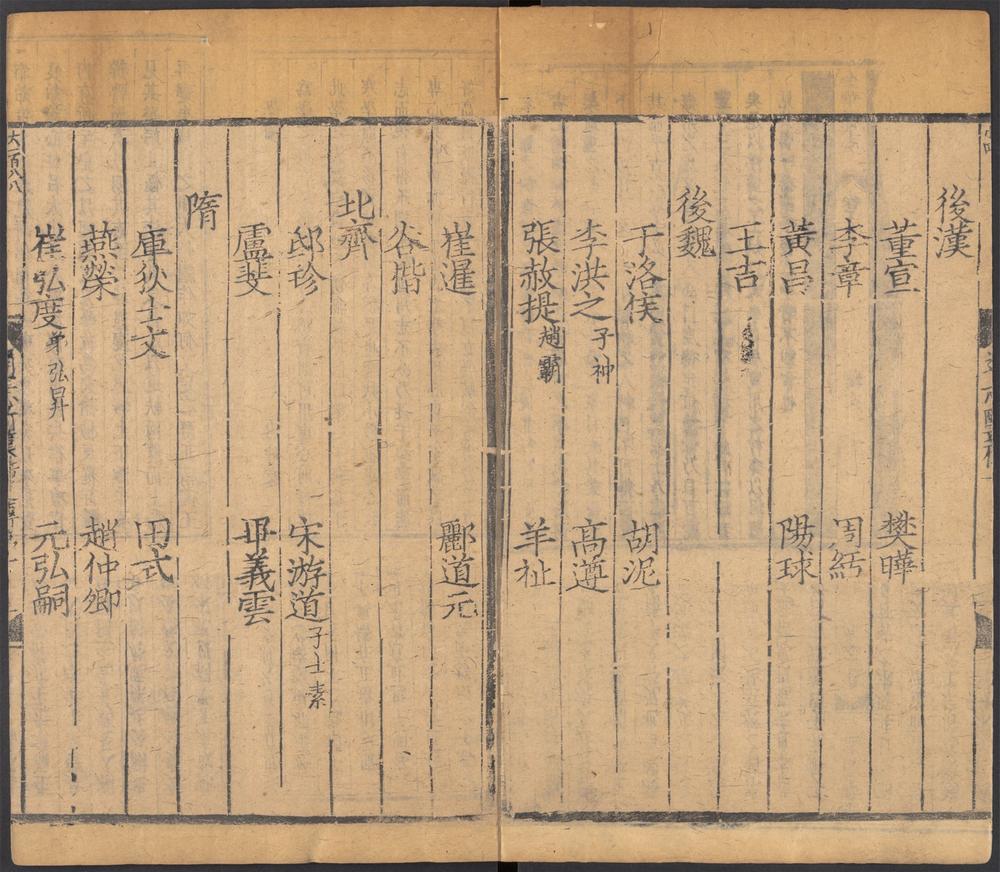 後漢
董宣 樊曄
李章 周䊸
黃昌 陽球
王吉
後魏
于洛侯 胡泥
李洪之子神 高遵
張赦提趙霸 羊祉
崔暹 酈道元
谷楷
北齊
邸珍 宋游道子士素
盧斐 毕義雲
隋
庫狄士文 田式
燕榮 趙仲卿
崔弘度弟弘昇 元弘嗣